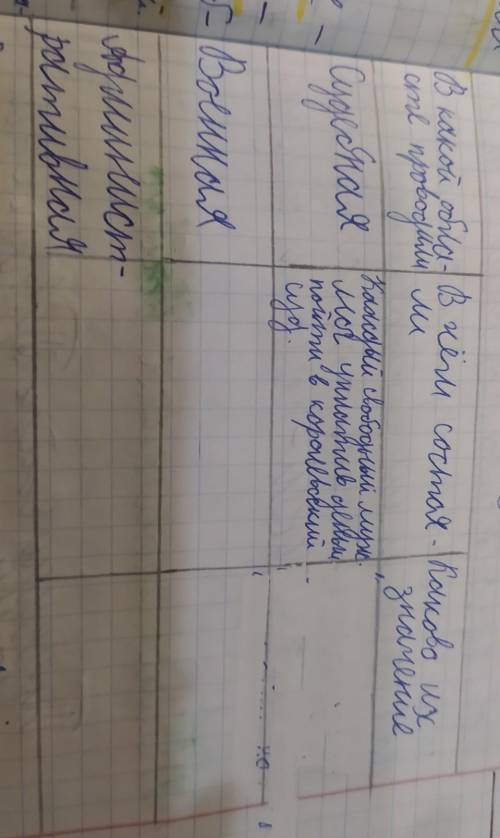 В какой обла-
сти проводили
В чём состоя-
ли
Каково их
значение
Судебная
Каждый свободный муж.
мог уплатив деньги
пойти в королевский
суд.
Военная
Админист-
ративная